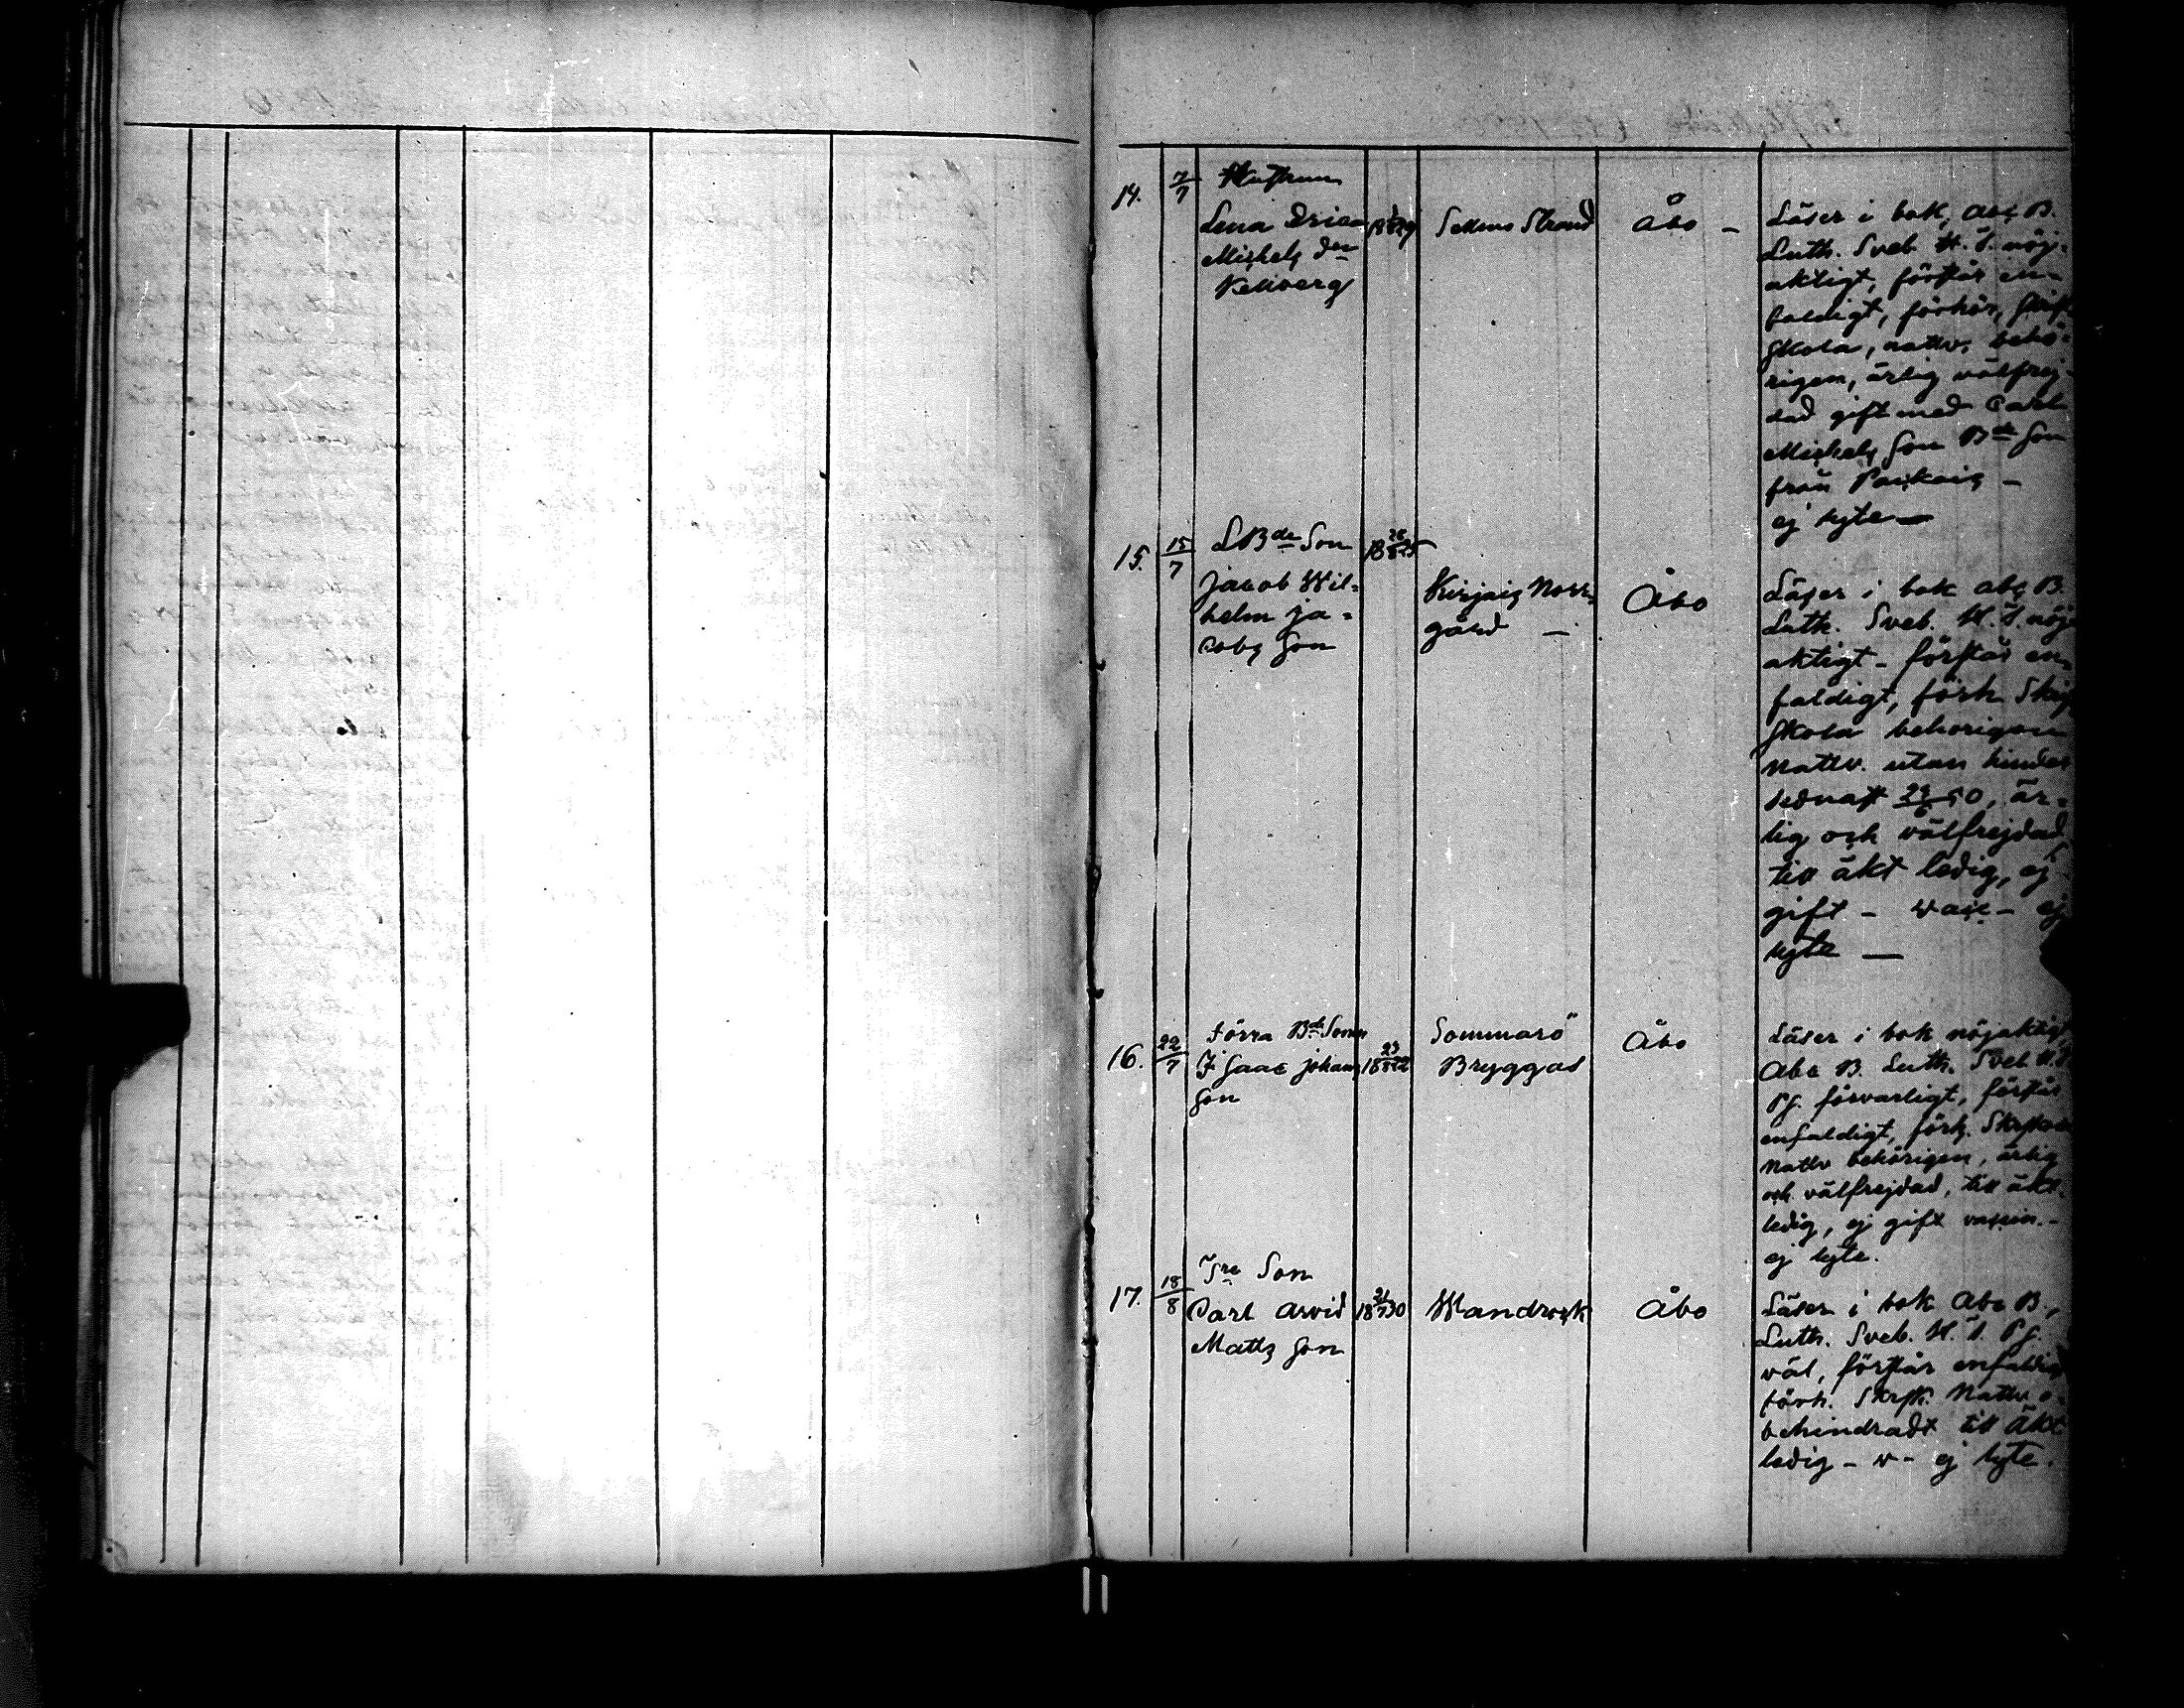 14. 7/7 Hustrun
Lena Erica Sellmo Strand Åbo –
Michels d:n
Kellberg
Läser i bok, abc B.
Luth. Sveb. H.T. nöj-
aktigt, förstår en-
faldigt, förhör, skrift
skola, nattv. behö-
rigen, ärlig välfrej-
dad gift med Carl
Michels Son B:de Son
från
ej lyte –
15. 15/7 L B:de Son
Jacob Wil-
helm Ja-
cobs Son
Kirjais Norr-
gård –
Åbo
Läser i bok abc B.
Luth. Sveb. H.T. nöj
aktigt – förstår en-
faldigt, förh. Skrif
skola behörigen
Nattv. utan hinder
sednast 50, är-
lig och välfrejdad
till äkt ledig, ej
gift – vacc – ej
lyte –
16. 22/7 förra B:de Sonen
Isaac Johans
Son
18 23/8 22
Sommarö
Bryggas
Åbo
Läser i bok nöjaktigt
Abc B. Luth. Sveb H.T
Ps. försvarligt, förstår
enfaldigt, förh. Skrskola
Nattv behörigen, ärlig
och välfrejdad, till äkt.
ledig, ej gift vaccin. –
ej lyte.
17. 18/8 T:re Son
Carl Arvid
Matts Son
18 21/7 30
Wandrock
Åbo
Läser i bok Abc B.,
Luth. Sveb. H.T. Ps.
väl, förstår enfaldigt
förh. Skrsk. Nattv o-
behindradt till Äkt
ledig – v – ej lyte.